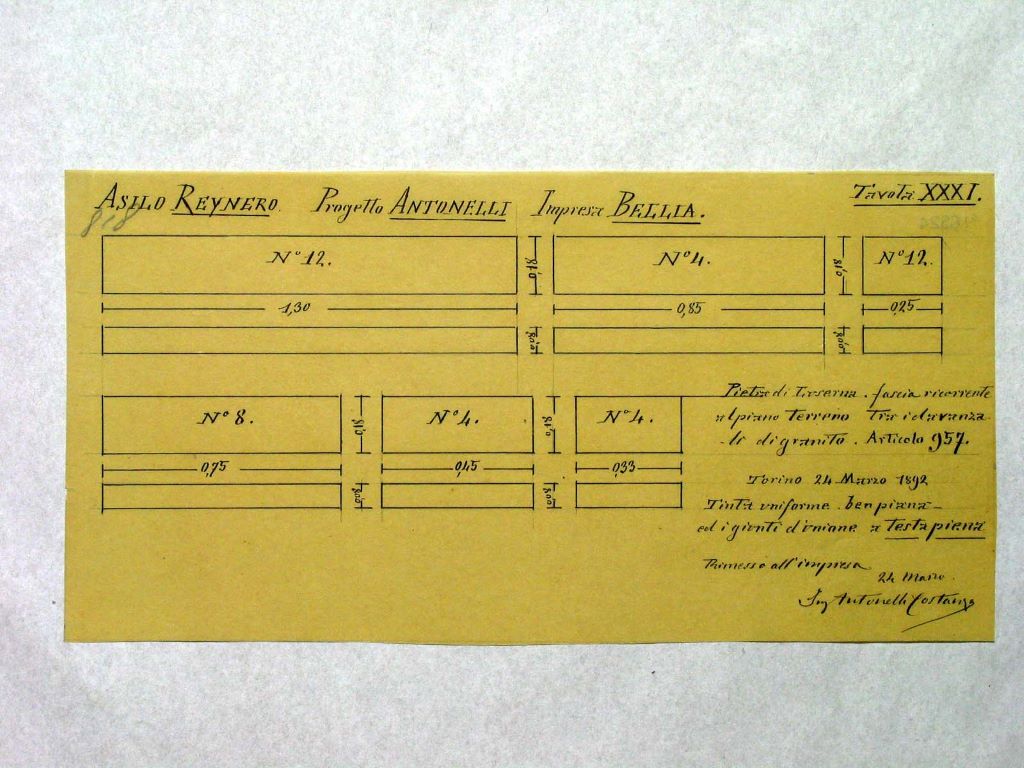 ASILO REYNERO. Progetto ANTONELLI Impresa BELLIA. Tavola XXXI.
818
N° 12. 0,18 N° 4. 0,18 N° 12.
1,30 0,85 0,25
0,08 0,08
Pietra di Luserna. fascia ricorrente
al piano terreno tra i davanza-
li di granito. Articolo 957.
N° 8. 0,18 N° 4. 0,18 N° 4.
0,75 0,45 0,33
0,08 0,08
Torino 24 Marzo 1892
Tinta uniforme. ben piana
ed i giunti d'unione a testa piena
Rimesso all'impresa
24 Marzo.
Ing Antonelli Costanzo